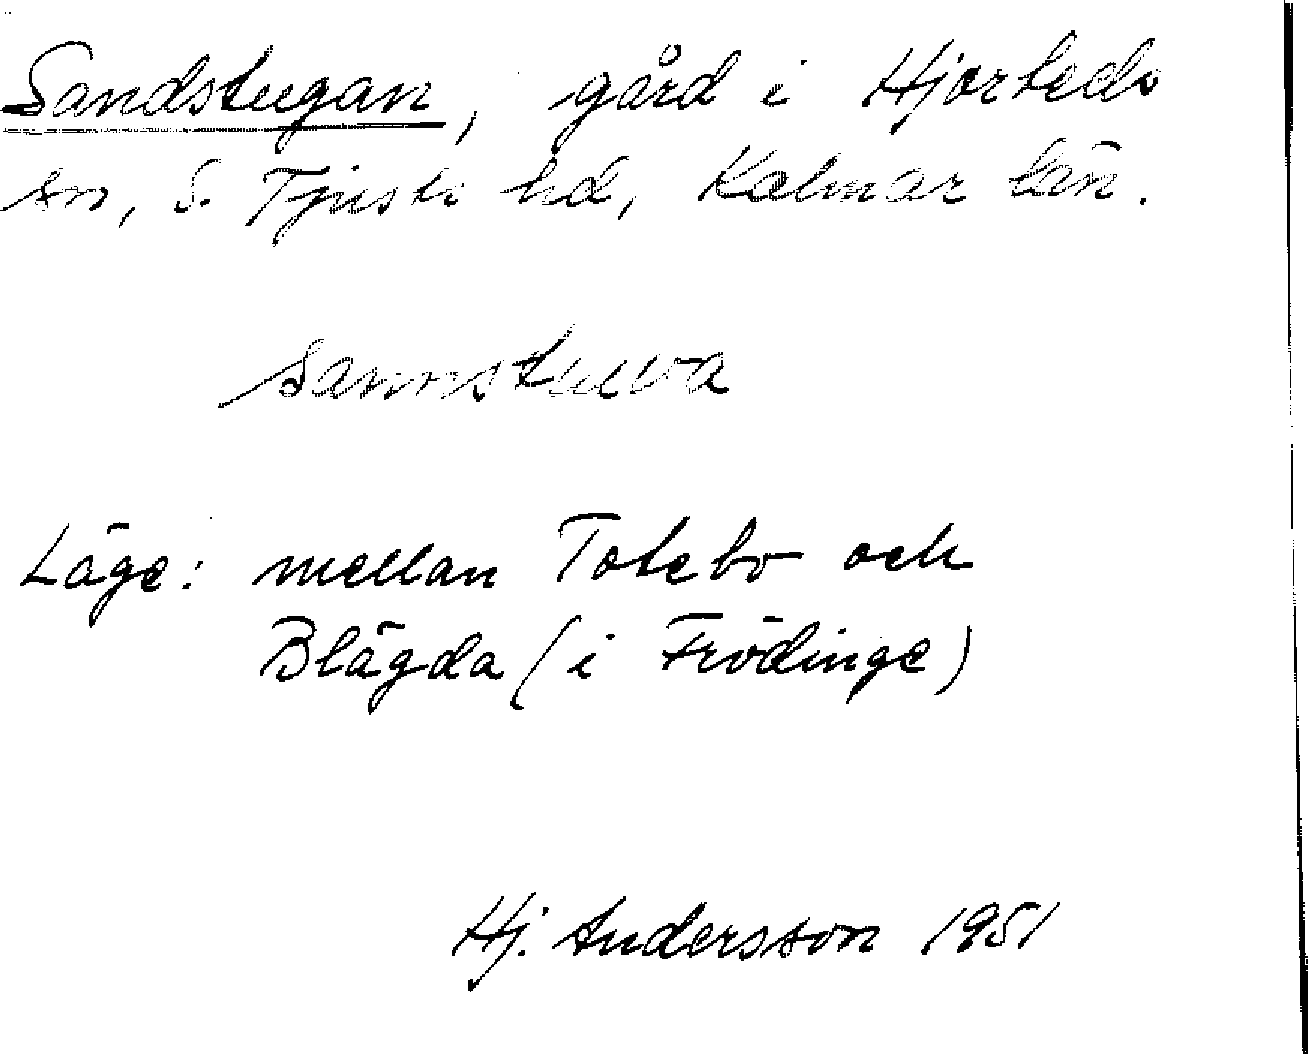 Sandstugan, gård i Hjorteds
sn, S. Tjusts hd, Kalmar län.
sannstuwa
Läge: mellan Totebo och
Blägda (i Frödinge)
Hj. Andersson 1951